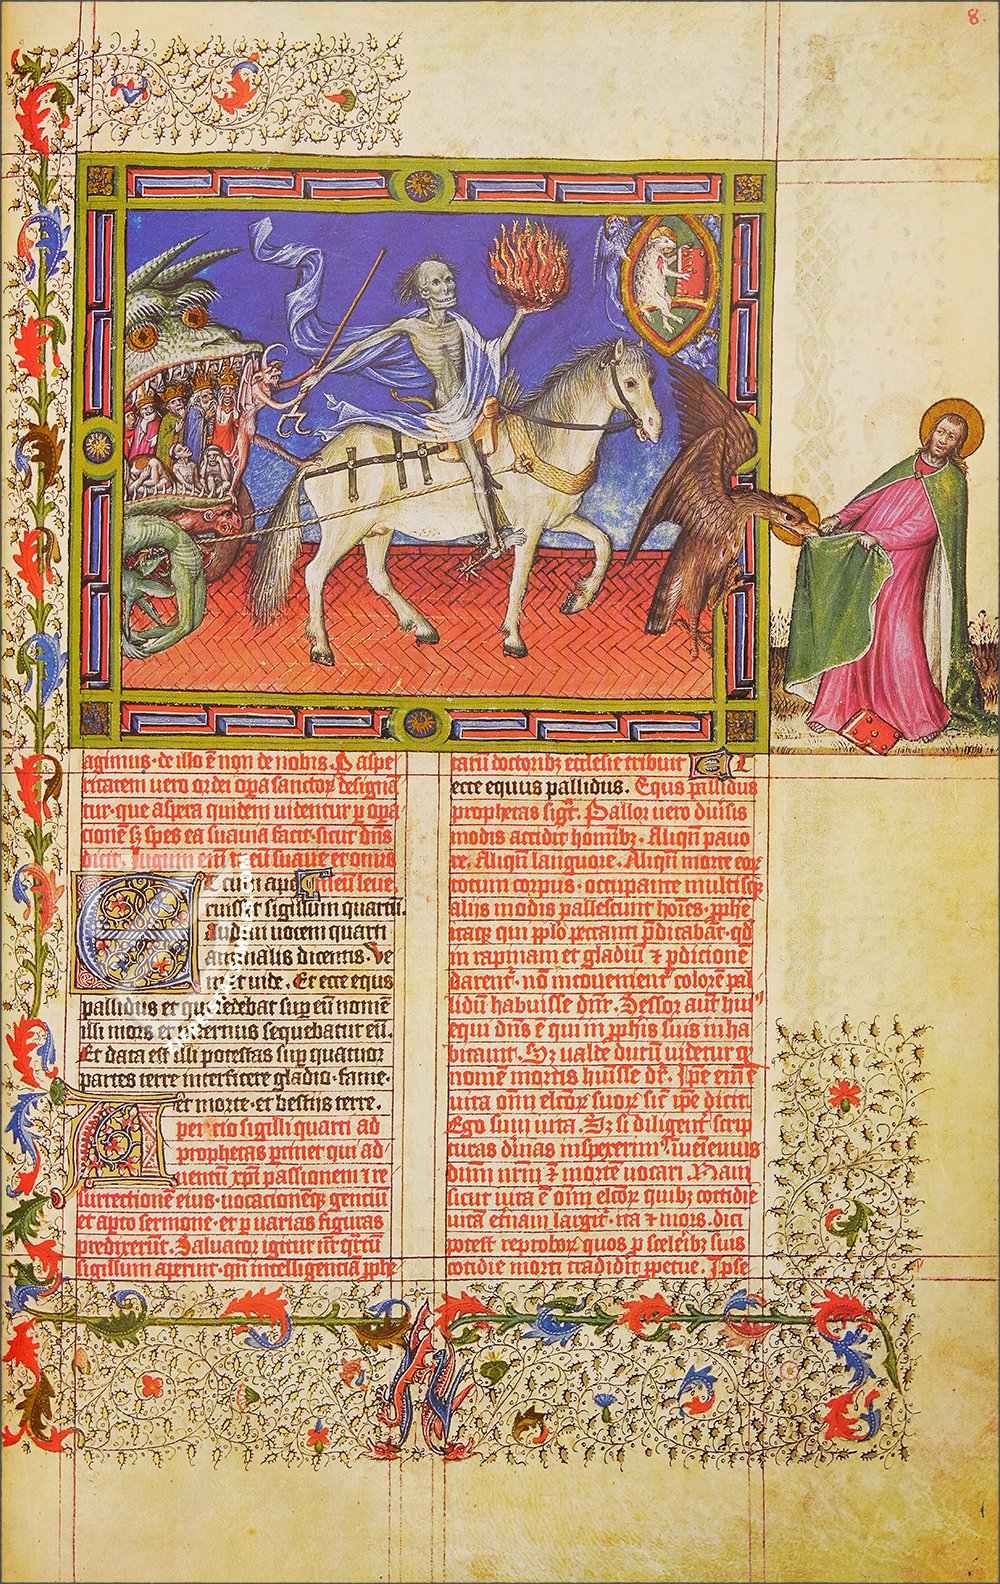 8.
agimus· de illo ē non de nobis. Aspe
ritatem uero ordei opa sanctor̄ designā
tur· que aspera quidem uidentur p opa
cionē sꝫ spes ea suauia facit· sicut dn̄s
dicit. Iugum em̄ meū suaue et onus
meū leue.
Et cum ape
ruisset sigillum quartū.
Audiui uocem quarti
animalis dicentis. Ve
ni et uide. Et ecce equs
pallidus et qui sedebat sup eū nomē
illi mors et infernus sequebatur eū.
Et data est illi potestas sup quatuor
partes terre interficere gladio· fame·
et morte· et bestijs terre.
Apercio sigilli quarti ad
prophetas ptinet qui ad
uentū xp̄i passionem et re
surrectionē eius· uocacionēqꝫ genciū
et apto sermone· et p uarias figuras
predixerūt. Saluator igitur nr̄ qrtū
sigillum aperuit· qn̄ intelligenciā pphe
tarū doctoribꝫ ecclesie tribuit Et
ecce equus pallidus. Equs pallidus
prophetas sigt̄. Pallor uero diuisis
modis accidit hominibꝫ. Aliqn̄ pauo
re. Aliqn̄ languore. Aliqn̄ morte eor̄
totum corpus· occupante multisqꝫ
alijs modis pallescunt hoīes· pphe
itaqꝫ qui pplo peccanti p̄dicabāt· qd
in rapinam et gladiū ⁊ pdicionē
darent̄· nō incouenient̄ colorē pal
lidū habuisse dn̄r. Sessor aūt huiꝰ
equi dn̄s ē qui in pphis suis inha
bitauit. Sꝫ ualde durū uidetur qꝫ
nomē mortis huisse dr̄. Ipe em̄ ē
uita om̄i elcor̄ suor̄ sic̄ ipe dicit
Ego sum uita. Sꝫ si diligent̄ scrip
turas diuinas inspexerim9 iueniemus
dūm nr̄m ⁊ mortē uocari. Nam
sicut uita ē om̄i elcor̄ quibꝫ cottidie
uitā et̄nam largit̄· ita ⁊ mors· dici
potest reprobor̄ quos p sceleibꝫ suis
cotidie morti tradidit ppetue. Ipse